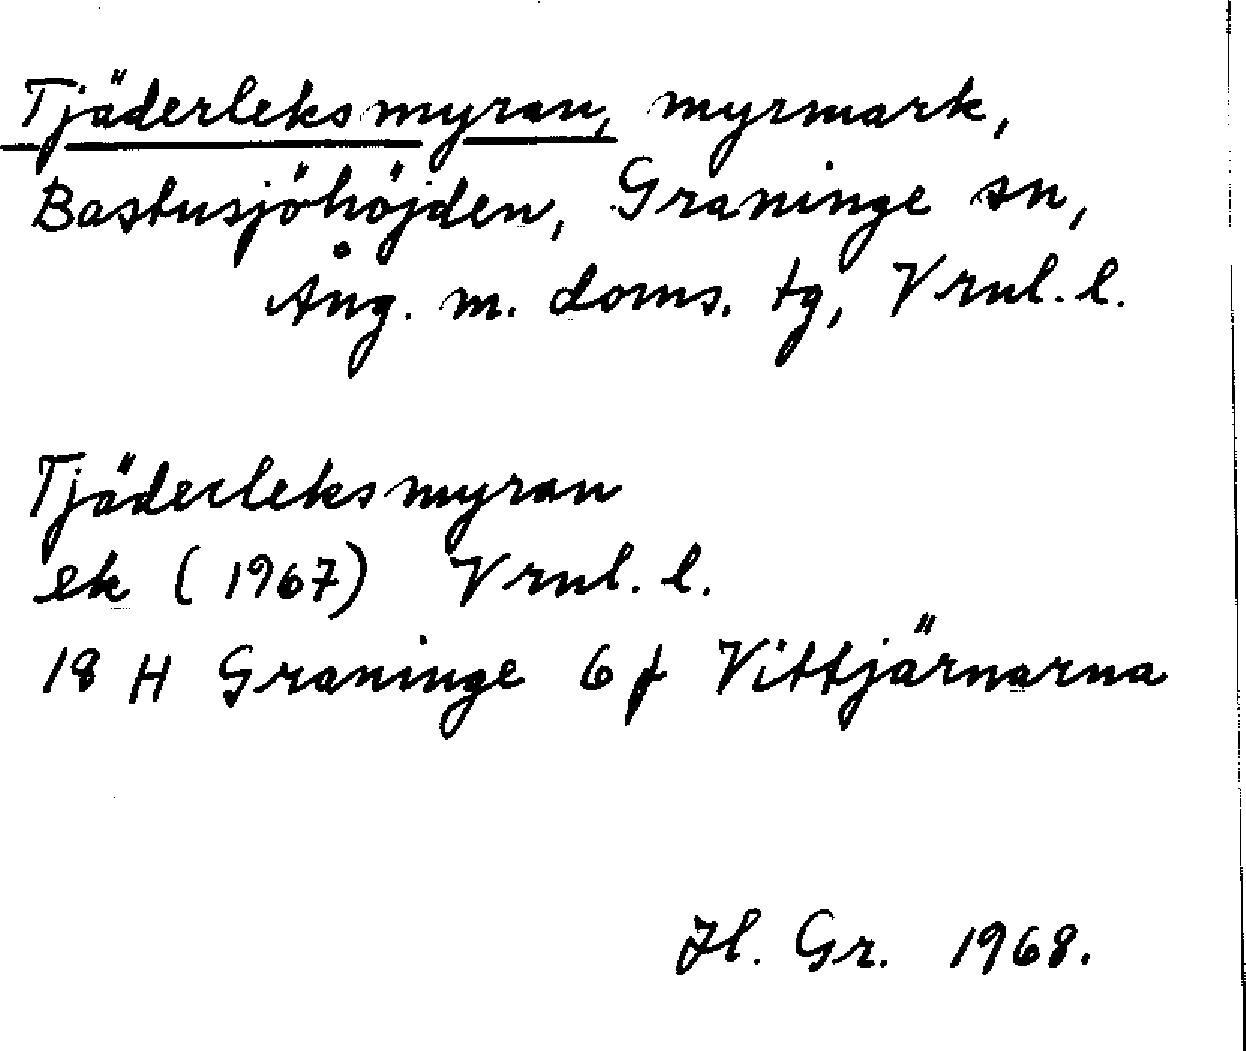 Tjäderleksmyran, myrmark,
Bastusjöhöjden, Graninge sn,
Ång. m. doms. tg, Vrnl. l.
Tjäderleksmyran
ek (1967) Vrnl. l.
18 H Graninge 6 f Vittjärnarna
Hl. Gr. 1968.